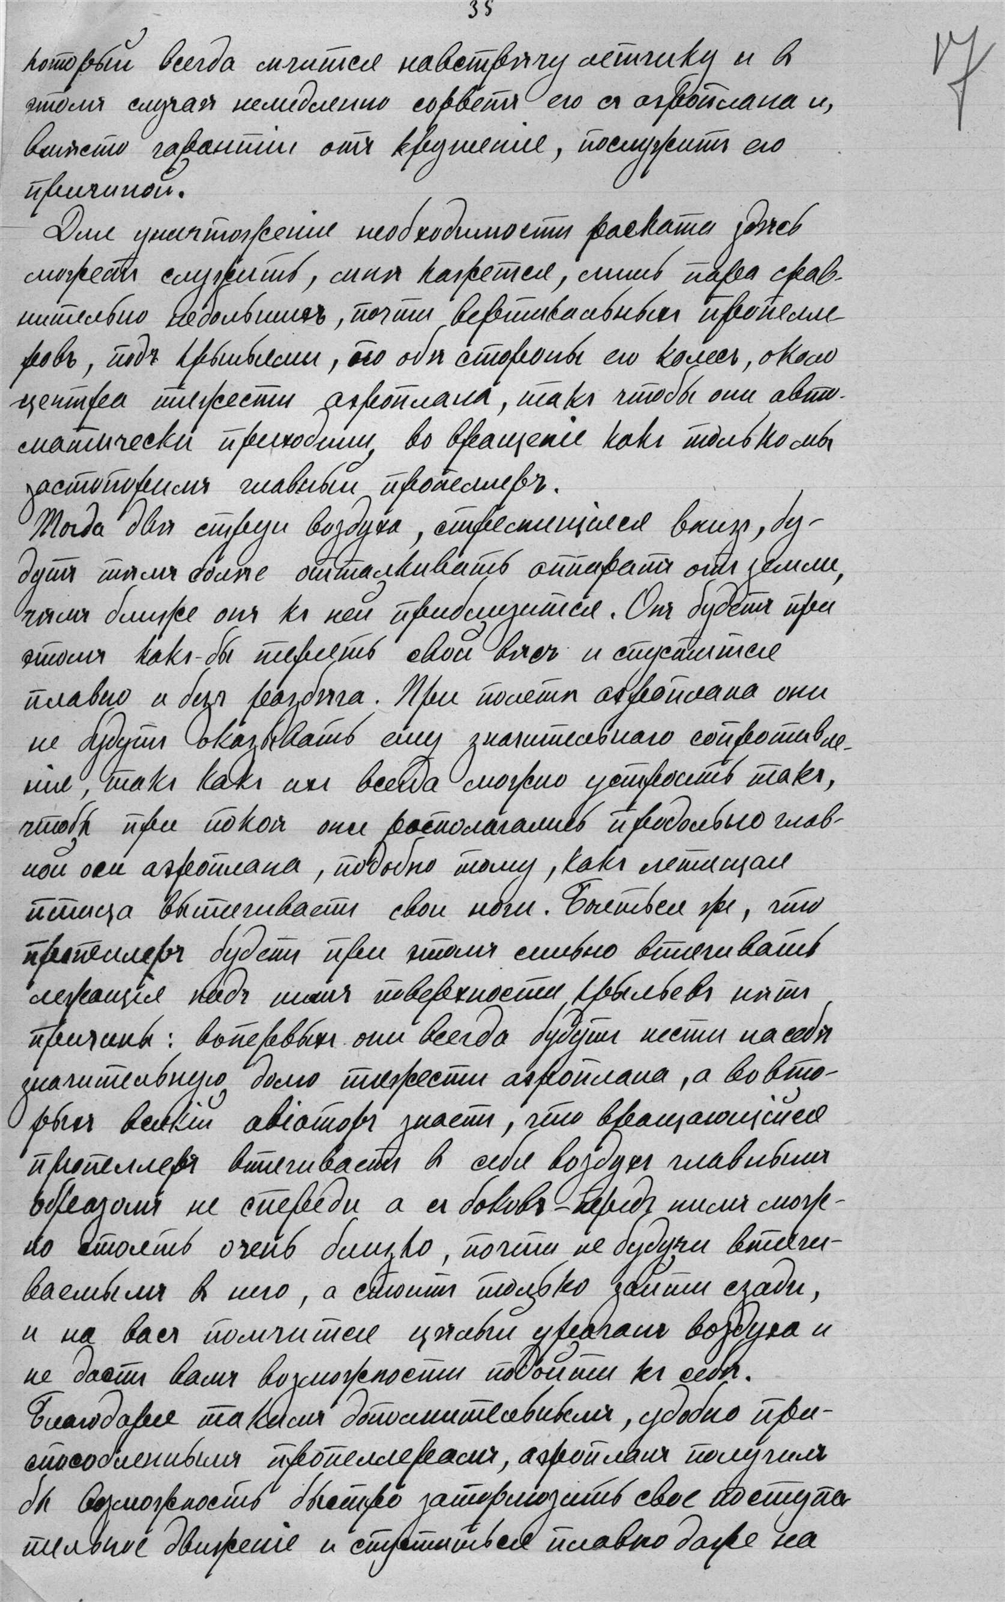 35
17
который всегда мчится навстрѣчу летчику и въ
этомъ случаѣ немедленно сорветъ его съ аэроплана и,
вмѣсто гарантіи отъ крушенія, послужитъ его
причиной.
Для уничтоженія необходимости раската здѣсь
можетъ служить, мнѣ кажется, лишь пара срав-
нительно небольшихъ, почти вертикальныхъ пропелле-
ровъ, подъ крыльями, по обѣ стороны его колесъ, около
центра тяжести аэроплана, такъ чтобы они авто-
матически приходили во вращеніе какъ только мы
застопоримъ главный пропеллеръ.
Тогда двѣ струи воздуха, стремящіяся внизъ, бу-
дутъ тѣмъ болѣе отталкивать аппаратъ отъ земли,
чѣмъ ближе онъ къ ней приблизится. Онъ будетъ при
этомъ какъ-бы терять свой вѣсъ и спустится
плавно и безъ разбѣга. При полетѣ аэроплана они
не будутъ оказывать ему значительнаго сопротивле-
нія, такъ какъ ихъ всегда можно устроить такъ,
чтобы при покоѣ они располагались продольно глав-
ной оси аэроплана, подобно тому, какъ летящая
птица вытягиваетъ свои ноги. Бояться же, что
пропеллеръ будетъ при этомъ сильно втягивать
лежащія надъ нимъ поверхности крыльевъ нѣтъ
причины: вопервыхъ они всегда будутъ нести на себѣ
значительную долю тяжести аэроплана, а вовто-
рыхъ всякій авіаторъ знаетъ, что вращающійся
пропеллеръ втягиваетъ въ себя воздухъ главнымъ
образомъ не спереди а съ боковъ - передъ нимъ мож-
но стоять очень близко, почти не будучи втяги-
ваемымъ въ него, а стоитъ только зайти сзади,
и на васъ помчится цѣлый ураганъ воздуха и
не дастъ вамъ возможности подойти къ себѣ.
Благодаря такимъ дополнительнымъ, удобно при-
способленнымъ пропеллерамъ, аэропланъ получилъ
бы возможность быстро затормозить свое поступа-
тельное движеніе и спуститься плавно даже на